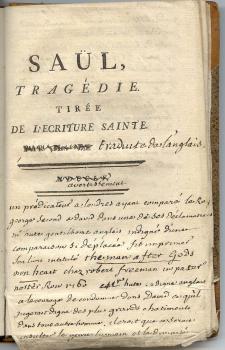 SAÜL,
TRAGÉDIE
TIRÉE
DE L'ECRITURE SAINTE
traduite de l'anglais.
avertissement
un prédicateur a londres ayant comparé le Roi
george second a david dans une de ses Declamations
un autre gentilhomme anglais indigné d'une
comparaison si déplacée fit imprimer
Son livre intitulé the man after Gods
own heart chez robert freeman in pater
noster Row 1760
a le courage de condamner dans David ce qu'il
jugerait digne des plus grands chatiments
dans tout autre homme,
le genre humain et la